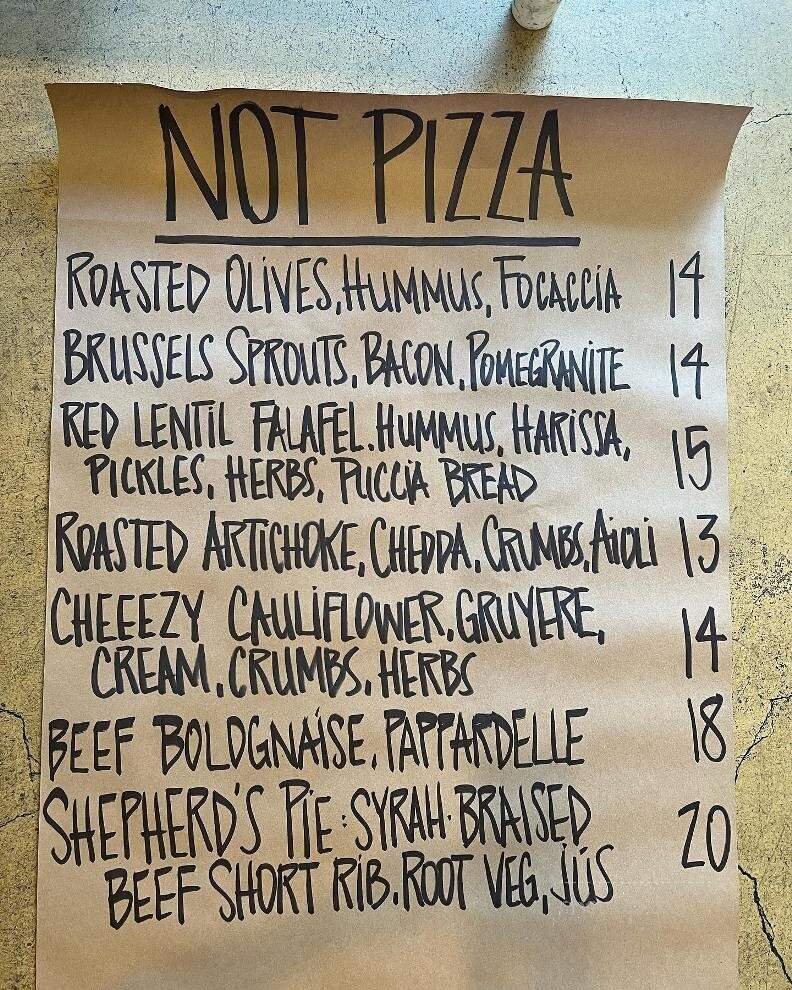 NOT PIZZA
ROASTED OLIVES, HUMMUS, FOCACCIA 14
BRUSSELS SPROUTS, BACON, POMEGRANITE 14
RED LENTIL FALAFEL. HUMMUS, HARISSA,
PICKLES, HERBS, PUCCIA BREAD 15
ROASTED ARTICHOKE, CHEDDA, CRUMBS, AIOLI 13
CHEEEZY CAULIFLOWER, GRUYERE,
CREAM, CRUMBS, HERBS 14
BEEF BOLOGNAISE, PAPPARDELLE 18
SHEPHERD'S PIE: SYRAH-BRAISED
BEEF SHORT RIB, ROOT VEG, JUS 20